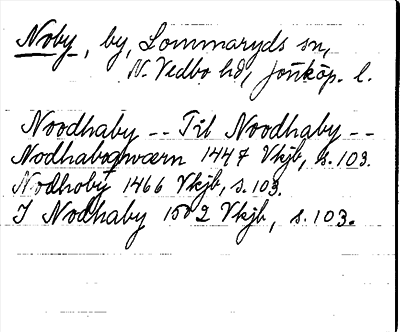 Noby, by, Lommaryds sn,
N. Vedbo hd, Jönköp. l.
Noodhaby -- Til Noodhaby --
Nodhaboqwærn 1447 Vkjb, s. 103.
Nodhoby 1466 Vkjb, s. 103.
I Nodhaby 1502 Vkjb, s. 103.